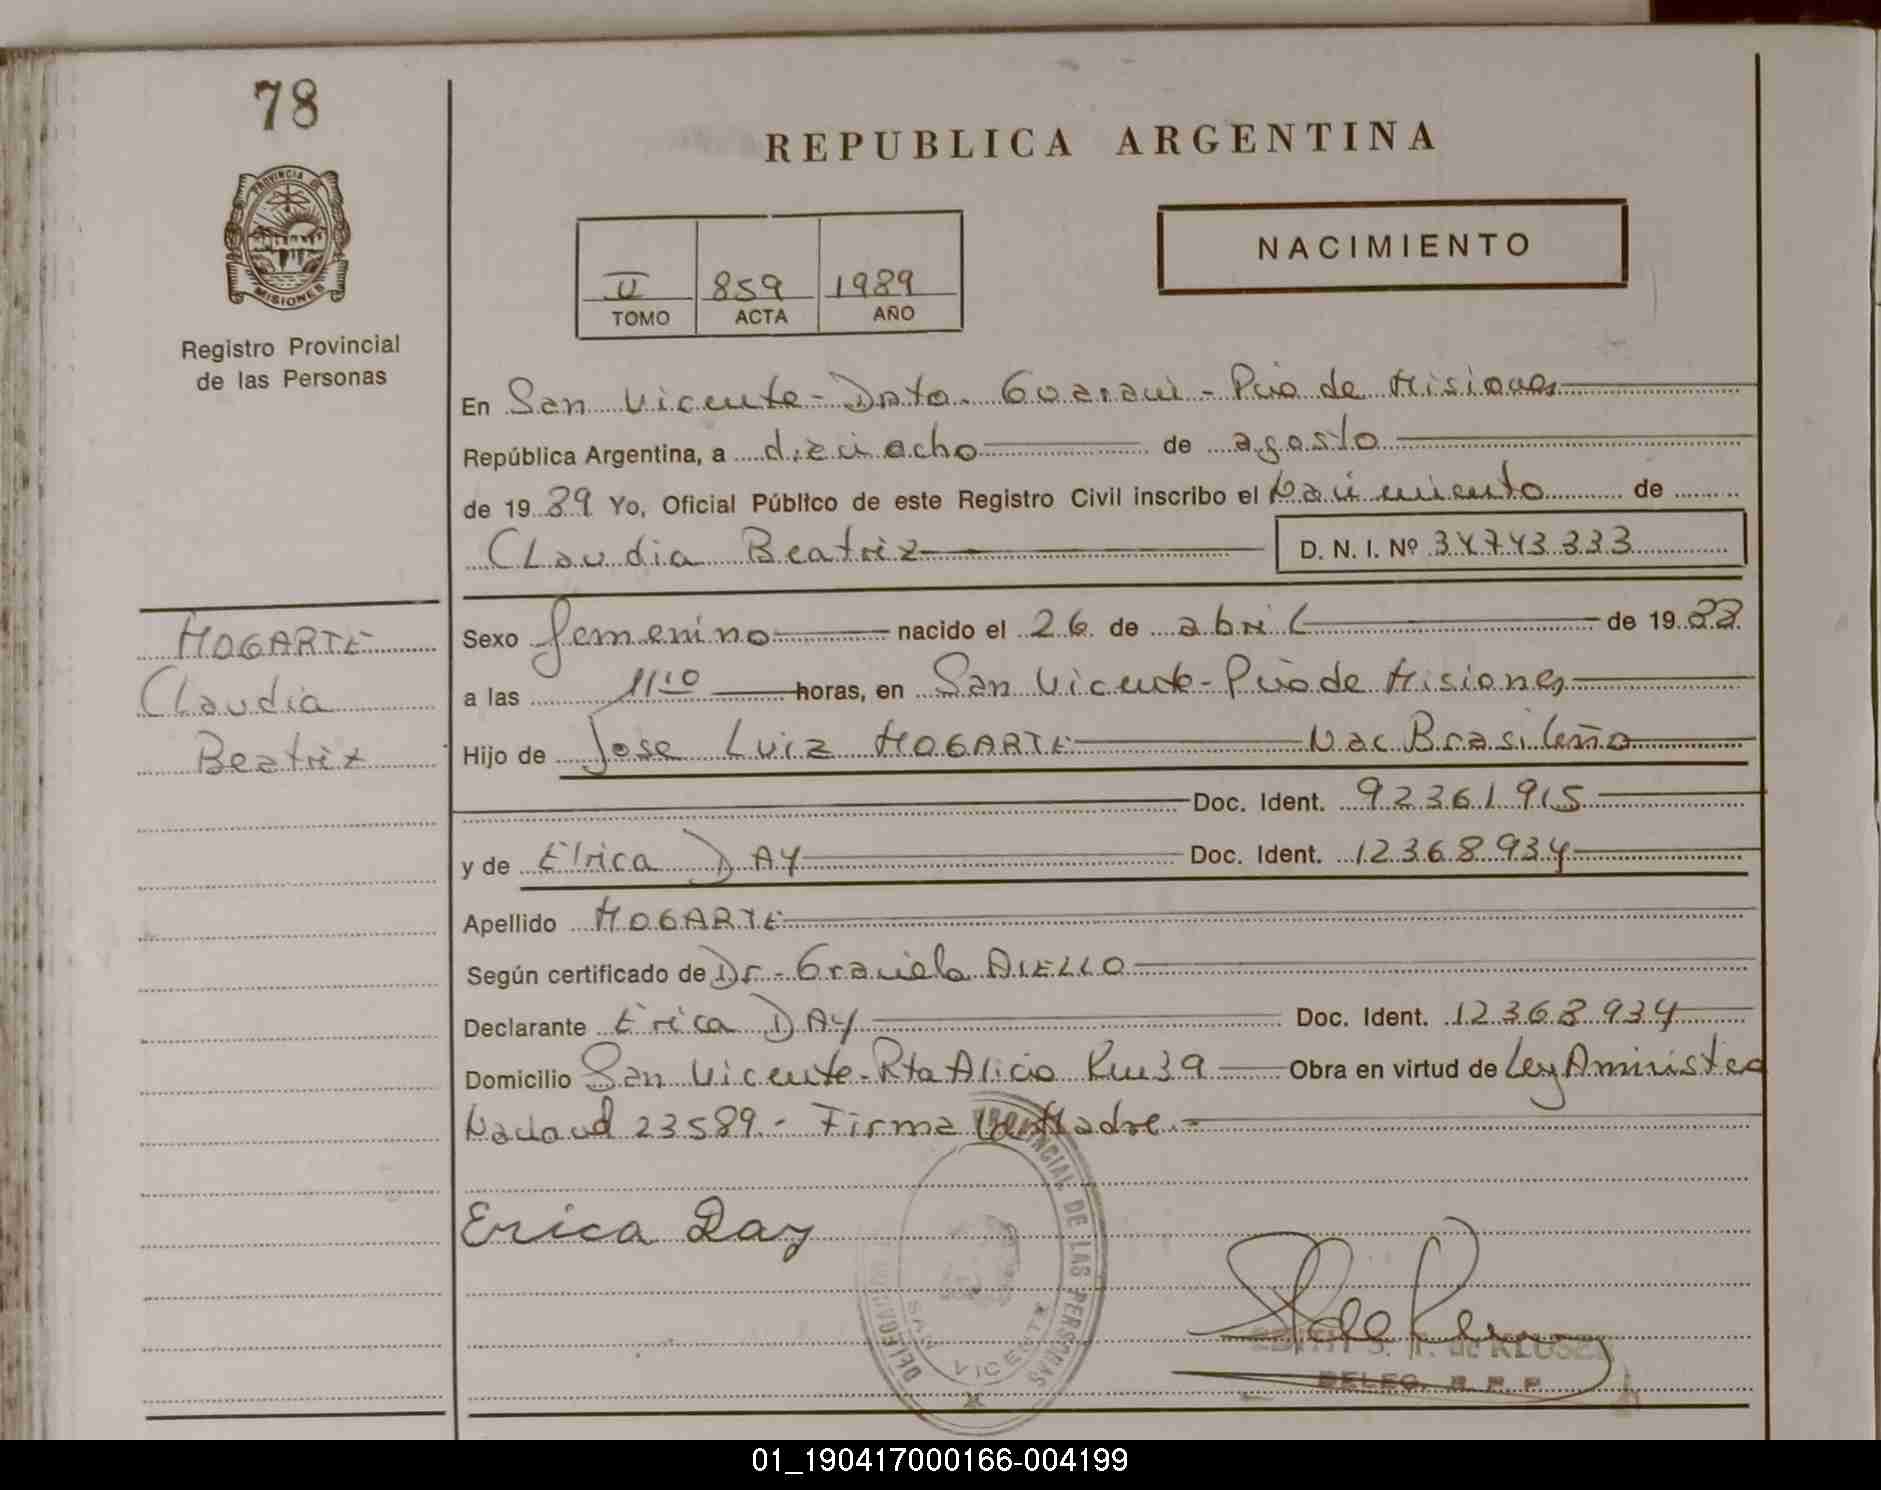 78
PROVINCIA DE
MISIONES
Registro Provincial
de las Personas
REPUBLICA ARGENTINA
NACIMIENTO
II 859 1989
TOMO ACTA AÑO
En San Vicente - Dpto. Guarani - Pcia de Misiones
República Argentina, a dieciocho de agosto
de 1989 Yo, Oficial Público de este Registro Civil inscribo el Nacimiento de
Claudia Beatriz D. N. I. Nº 34743333
HOGARTE
Claudia
Beatriz
Sexo femenino nacido el 26 de abril de 1988
a las 11:10 horas, en San Vicente - Pcia de Misiones
Hijo de Jose Luiz HOGARTE Nac Brasileña
Doc. Ident. 92361915
y de Erica DAY Doc. Ident. 12368934
Apellido HOGARTE
Según certificado de Dr. Graciela AIELLO
Declarante Erica DAY Doc. Ident. 12368934
Domicilio San Vicente - Rta Alicia Km 39 Obra en virtud de Ley Aministea
Nacional 23589 - Firma Madre
Erica Day
DELEGACION PROVINCIAL DE LAS PERSONAS
SAN VICENTE
de KLUSE
DELEG. R. P. P.
01_190417000166-004199